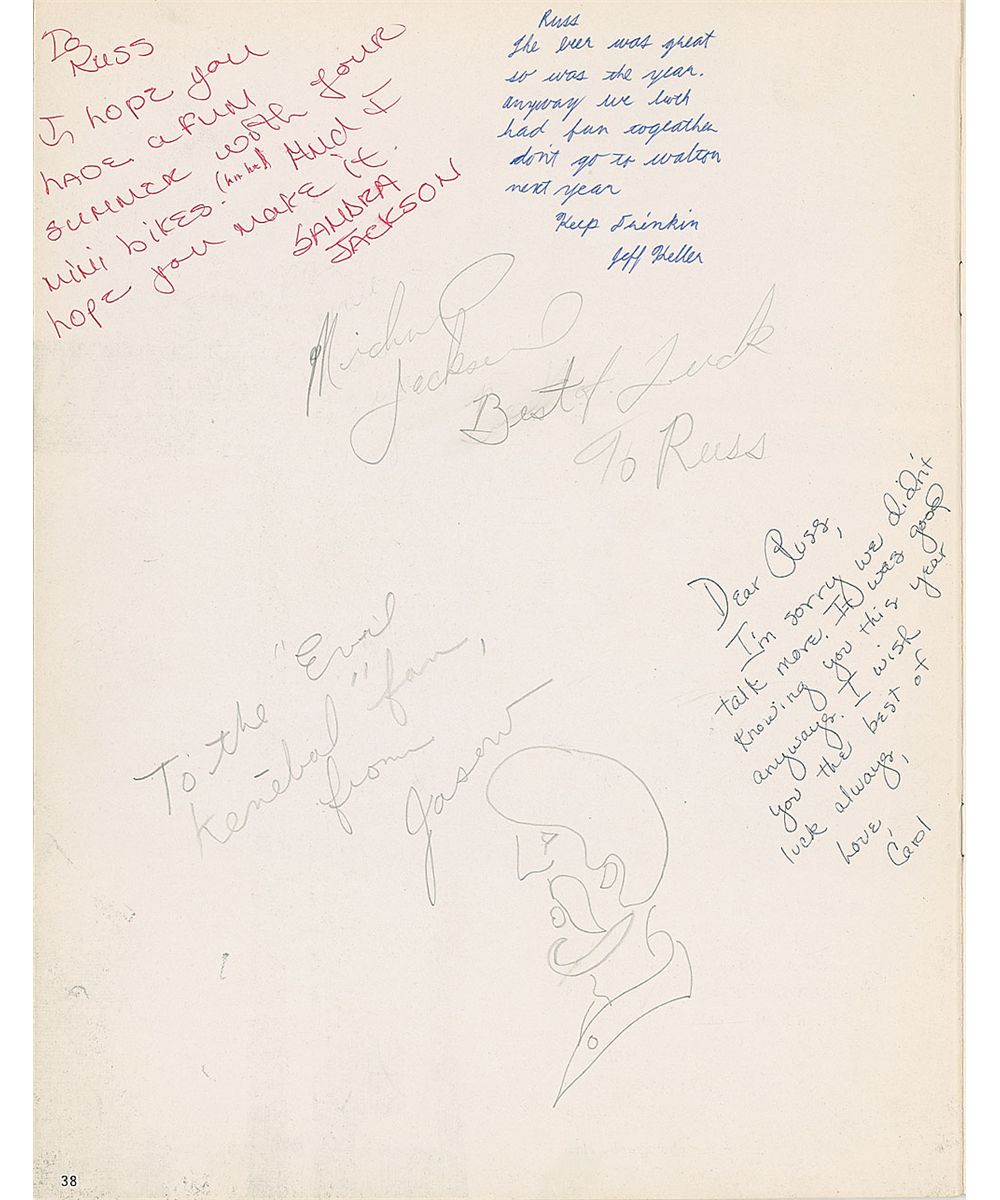 To
Russ
I hope you
have a fun
summer with your
mini bikes. (ha ha!) And I
hope you make it.
SANDRA
JACKSON
Russ
The beer was great
so was the year.
anyway we both
had fun togeather
don't go to walton
next year
Keep Drinkin
Jeff Heller
Michael
Jackson
Best of Luck
To Russ
Dear Russ,
I'm sorry we didn't
talk more. It was good
knowing you this year
anyways. I wish
you the best of
luck always,
Love,
Carol
To the "Evail
kenebal" fan,
from
Jason
38